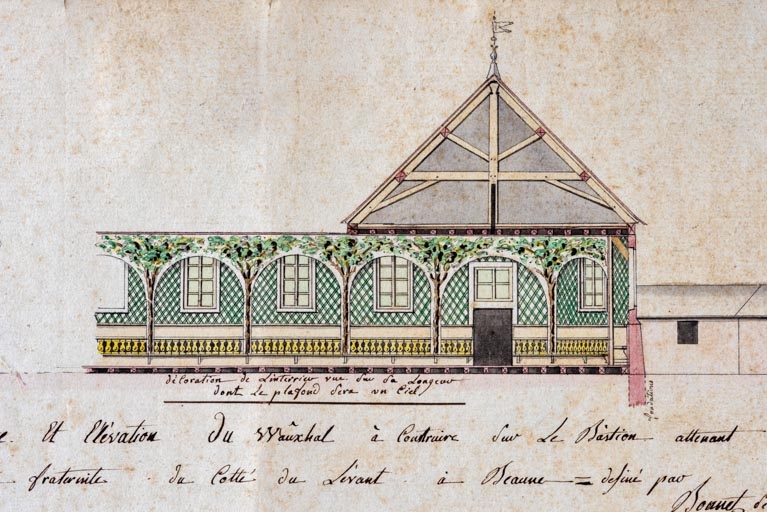 décoration de Linterrieur vue sur sa Longeur
dont Le plafond Sera un Ciel
fondations
e. Et Elévation Du Wauxhal à Contruire Sur Le Bastion attenant
fraternite du Cotté du Lévant à Beaune = desiné par
Bonnet